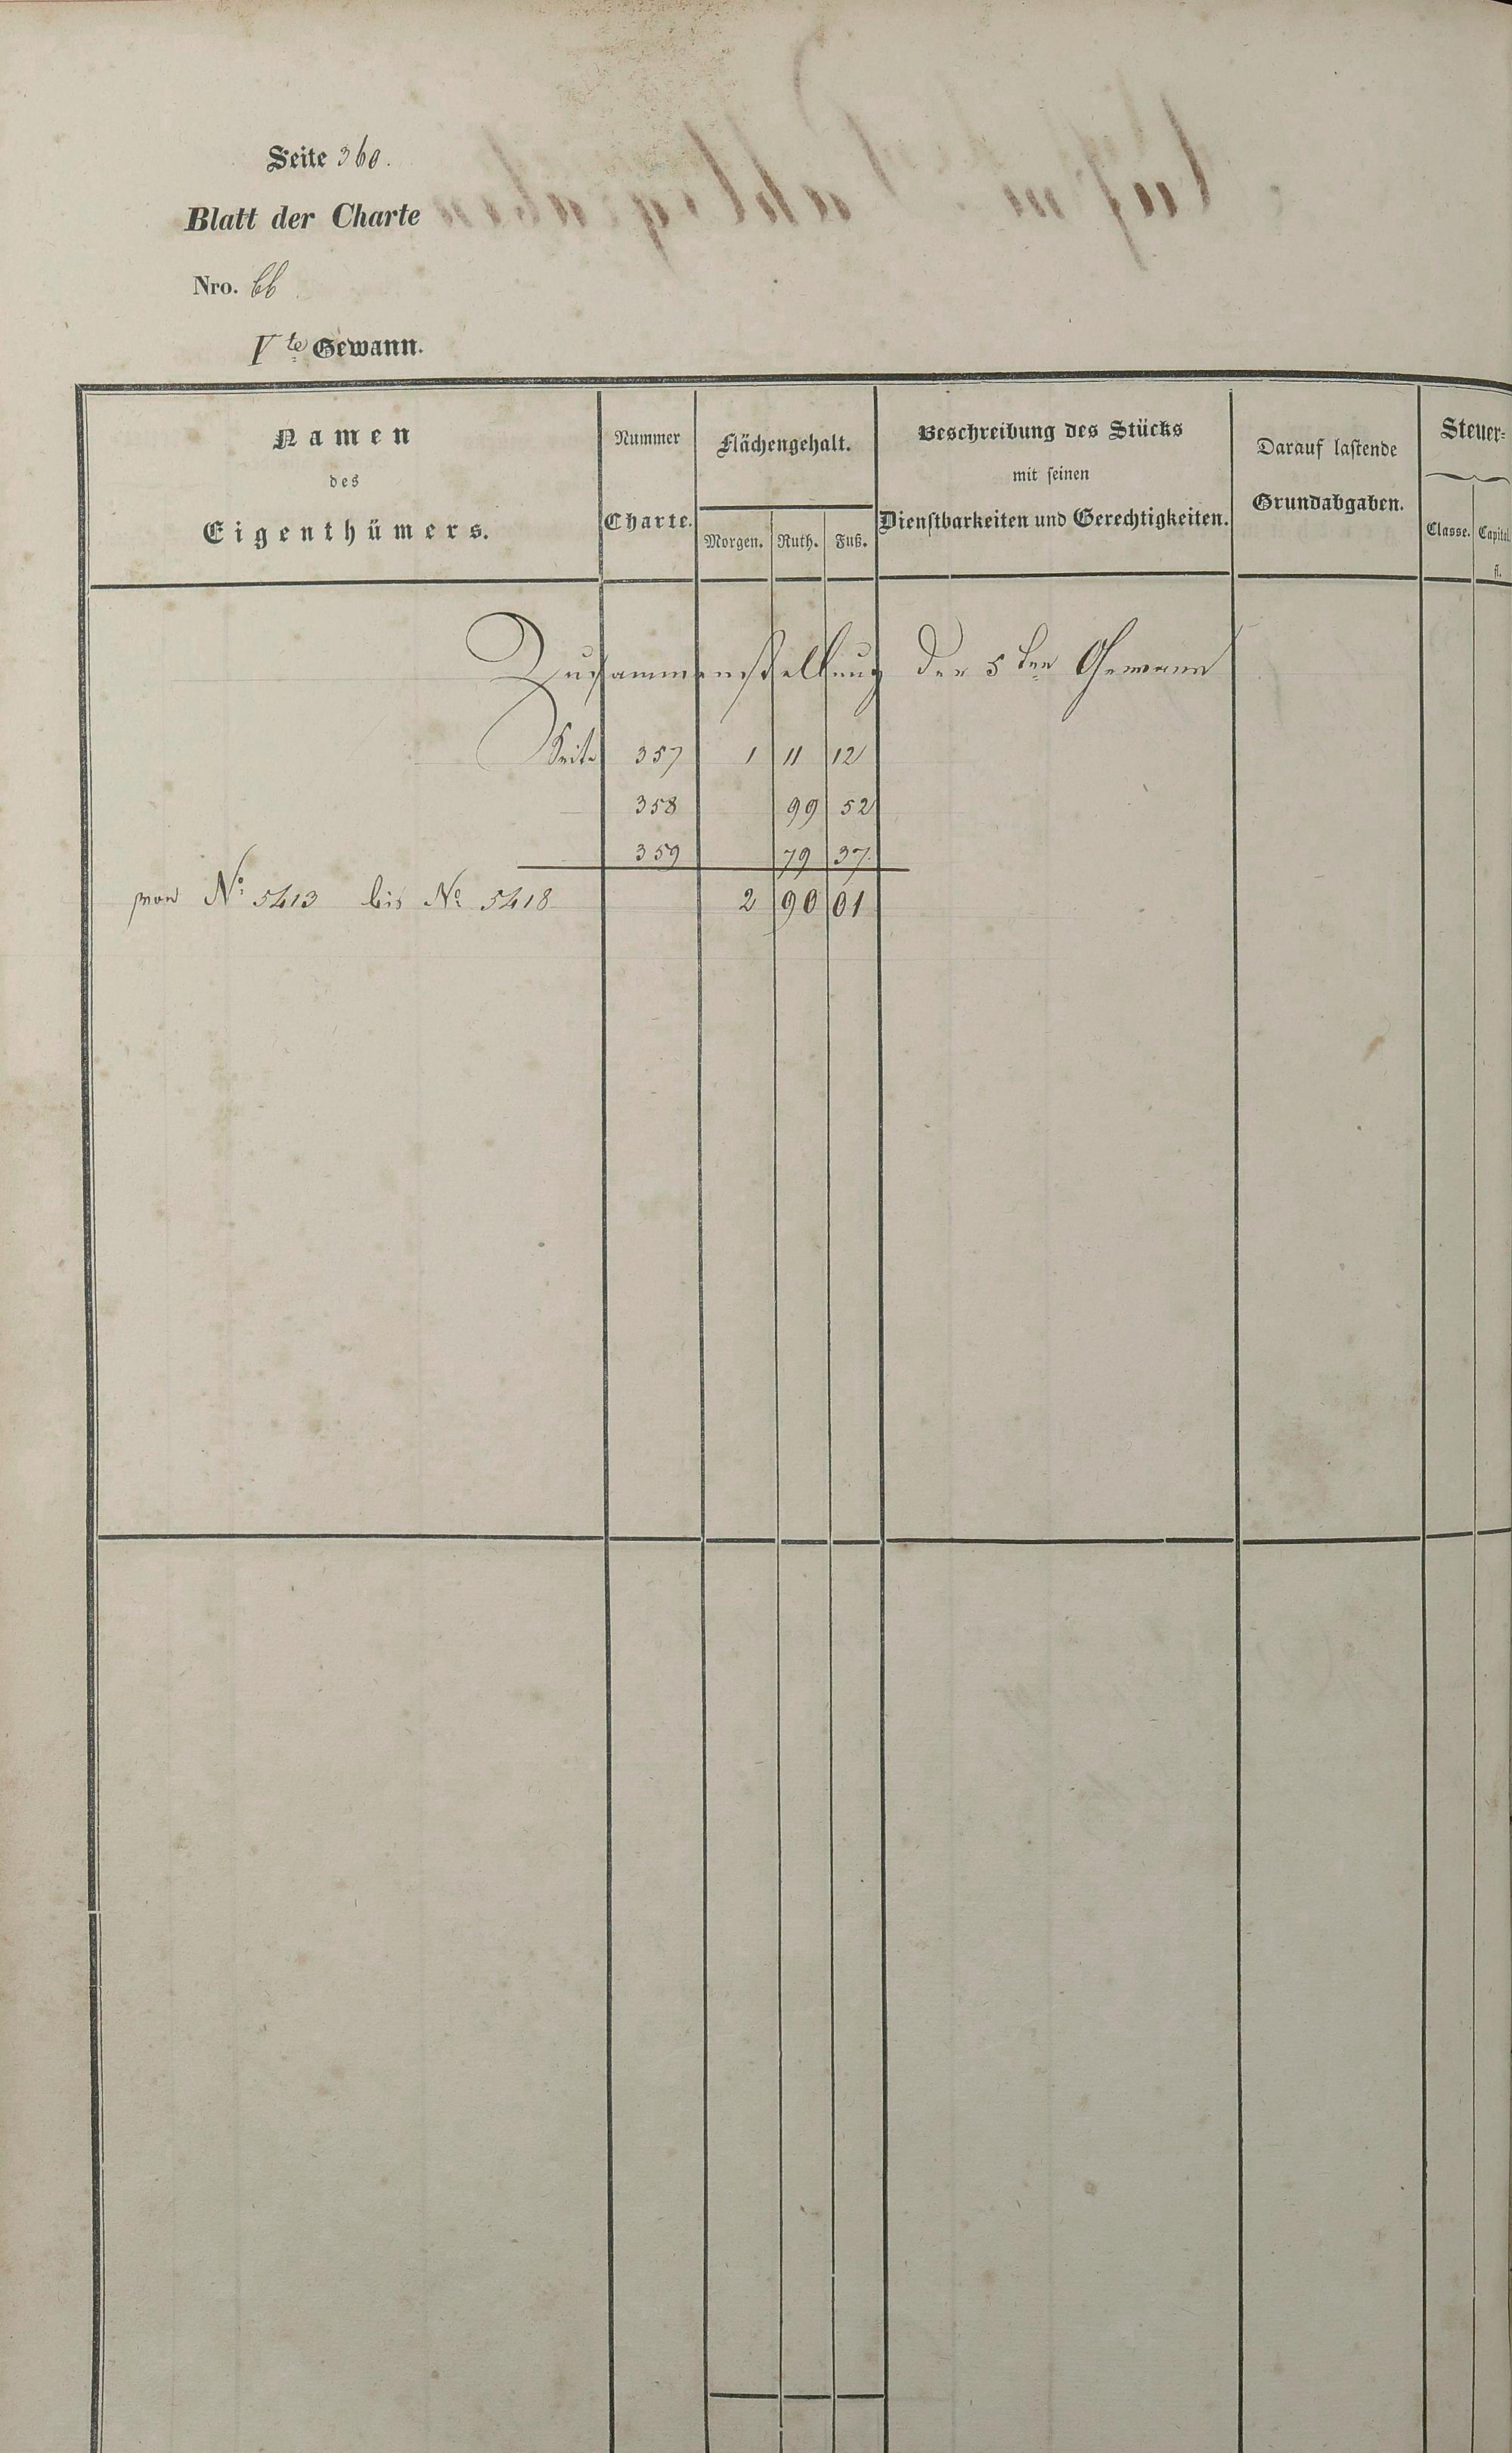 Seite 360.
Blatt der Charte
Nro. 66
Vte Gewann.
Namen
des
Eigenthümers.
Nummer
Charte.
Flächengehalt.
Morgen. Ruth. Fuß.
Beschreibung des Stücks
mit seinen
Dienstbarkeiten und Gerechtigkeiten.
Darauf lastende
Grundabgaben.
Steuer-
Classe. Capital.
fl.
Zusammenstellung der 5ten Gewann
Seite 357 1 11 12
358 99 52
359 79 37
von No. 5413 bis No. 5418 2 90 01